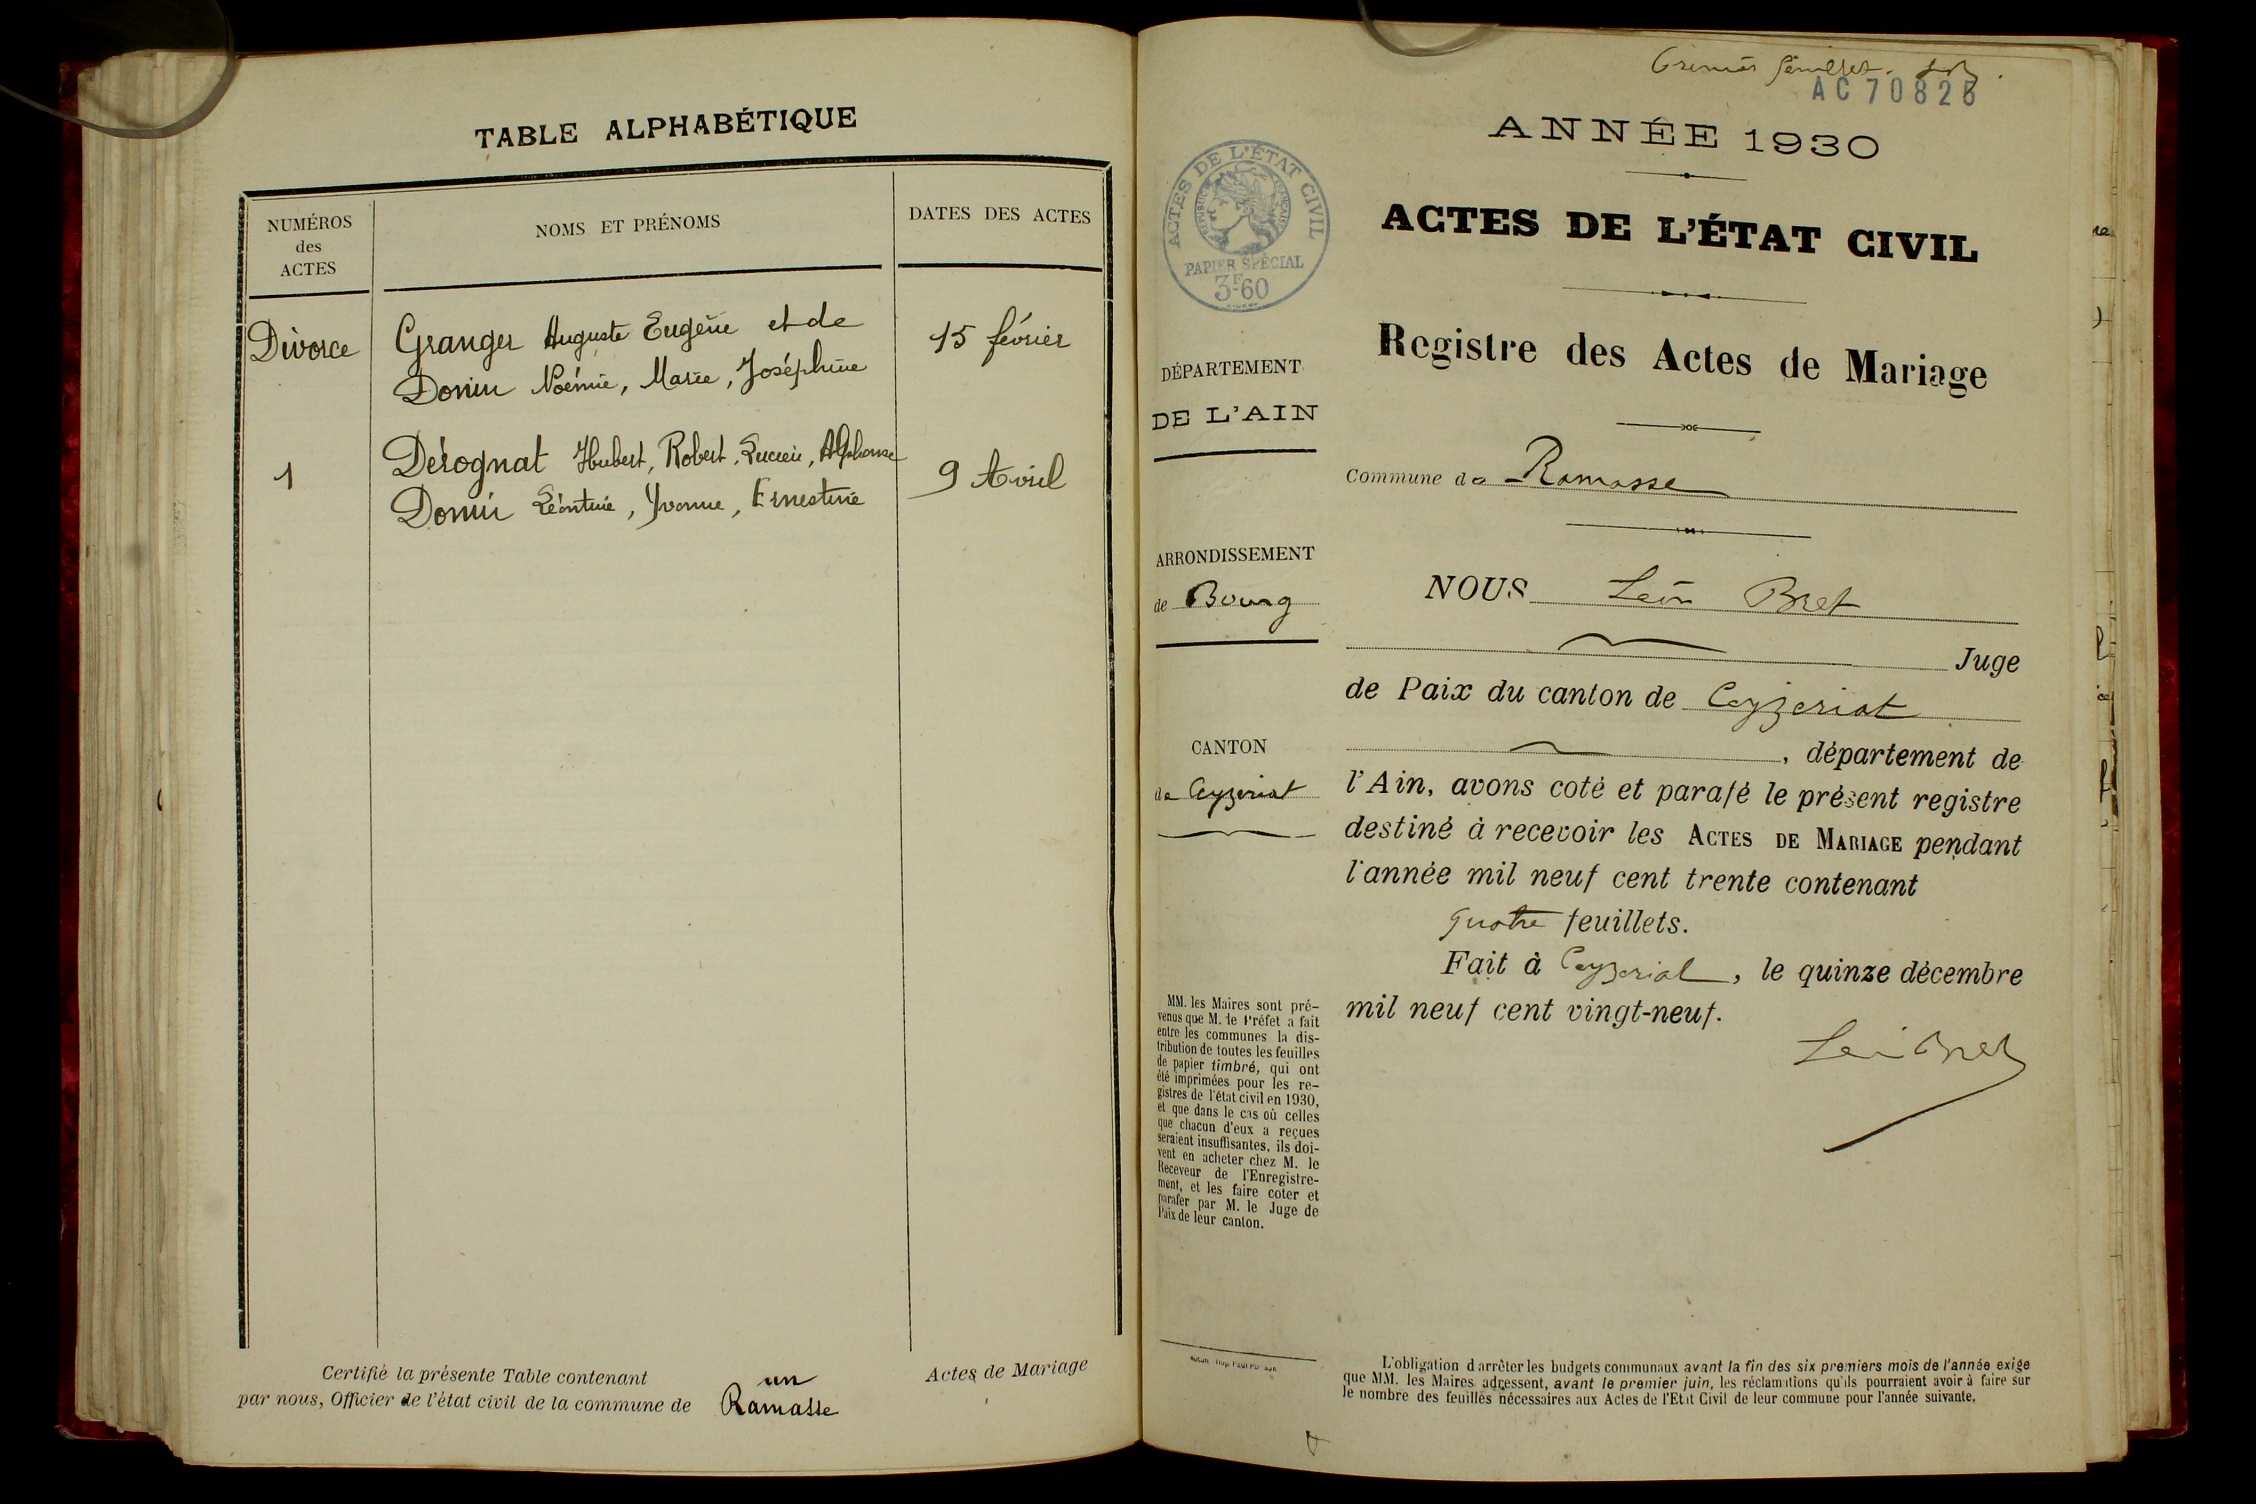 TABLE ALPHABÉTIQUE
NUMÉROS
des
ACTES
NOMS ET PRÉNOMS
DATES DES ACTES
Divorce
Granger Auguste Eugène et de
Donin Noémie, Marie, Joséphine
15 février
1
Dérognat Hubert, Robert, Lucien, Alphonse
Donin Léontine, Yvonne, Ernestine
9 Avril
Certifié la présente Table contenant un Actes de Mariage
par nous, Officier de l'état civil de la commune de Ramasse
Premier feuillet.
AC 70826
ANNÉE 1930
ACTES DE L'ÉTAT CIVIL
PAPIER SPÉCIAL
3F60
ACTES DE L'ÉTAT CIVIL
Registre des Actes de Mariage
DÉPARTEMENT
DE L'AIN
Commune de Ramasse
ARRONDISSEMENT
de Bourg
CANTON
de Ceyzeriat
NOUS Léon Bret
Juge
de Paix du canton de Ceyzeriat
, département de
l'Ain, avons coté et parafé le présent registre
destiné à recevoir les ACTES DE MARIAGE pendant
l'année mil neuf cent trente contenant
quatre feuillets.
Fait à Ceyzeriat, le quinze décembre
mil neuf cent vingt-neuf.
Léon Bret
MM. les Maires sont pré-
venus que M. le Préfet a fait
entre les communes la dis-
tribution de toutes les feuilles
de papier timbré, qui ont
été imprimées pour les re-
gistres de l'état civil en 1930,
et que dans le cas où celles
que chacun d'eux a reçues
seraient insuffisantes, ils doi-
vent en acheter chez M. le
Receveur de l'Enregistre-
ment, et les faire coter et
parafer par M. le Juge de
Paix de leur canton.
L'obligation d'arrêter les budgets communaux avant la fin des six premiers mois de l'année exige
que MM. les Maires adressent, avant le premier juin, les réclamations qu'ils pourraient avoir à faire sur
le nombre des feuilles nécessaires aux Actes de l'Etat Civil de leur commune pour l'année suivante.